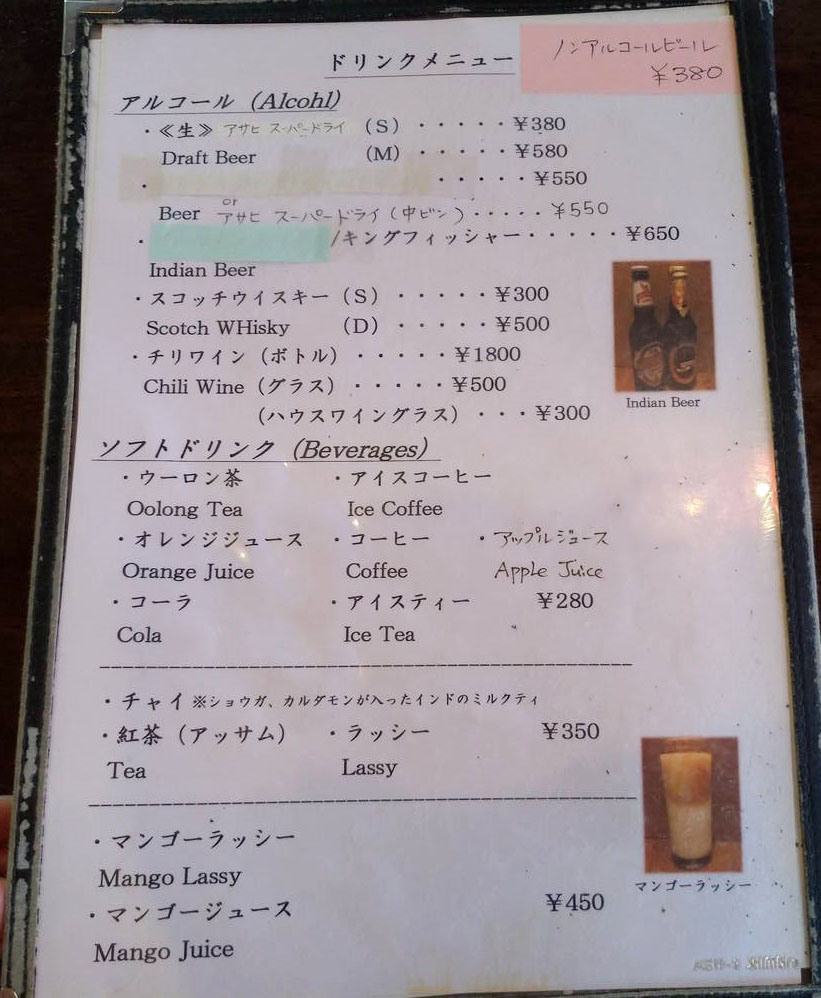 ドリンクメニュー
ノンアルコールビール
¥380
アルコール (Alcohl)
・≪生≫ アサヒ スーパードライ (S) ・・・・・¥380
Draft Beer (M) ・・・・・¥580
・ ・・・・・¥550
Beer or アサヒ スーパードライ (中ビン)・・・・・¥550
・ /キングフィッシャー・・・・・¥650
Indian Beer
・スコッチウイスキー (S) ・・・・・¥300
Scotch WHisky (D) ・・・・・¥500
・チリワイン (ボトル) ・・・・・¥1800
Chili Wine (グラス) ・・・・・¥500
(ハウスワイングラス) ・・・¥300
Indian Beer
ソフトドリンク (Beverages)
・ウーロン茶 ・アイスコーヒー
Oolong Tea Ice Coffee
・オレンジジュース ・コーヒー ・アップルジュース
Orange Juice Coffee Apple Juice
・コーラ ・アイスティー ¥280
Cola Ice Tea
・チャイ ※ショウガ、カルダモンが入ったインドのミルクティ
・紅茶 (アッサム) ・ラッシー ¥350
Tea Lassy
・マンゴーラッシー
Mango Lassy
・マンゴージュース ¥450
Mango Juice
マンゴーラッシー